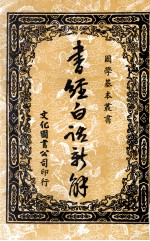 國學基本叢書
書經白話新解
文化圖書公司印行